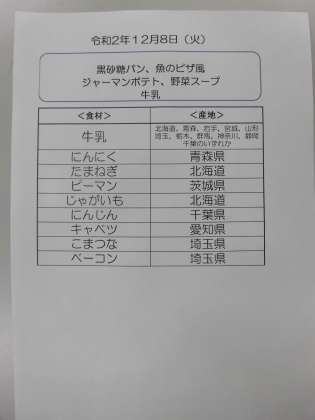 令和2年12月8日（火）
黒砂糖パン、魚のピザ風
ジャーマンポテト、野菜スープ
牛乳
＜食材＞ ＜産地＞
牛乳 北海道、青森、岩手、宮城、山形
埼玉、栃木、群馬、神奈川、静岡
千葉のいずれか
にんにく 青森県
たまねぎ 北海道
ピーマン 茨城県
じゃがいも 北海道
にんじん 千葉県
キャベツ 愛知県
こまつな 埼玉県
ベーコン 埼玉県